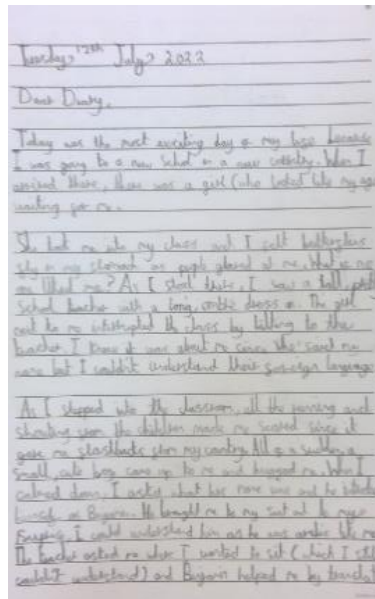 Tuesday, 12th July, 2022
Dear Diary,
Today was the most exciting day of my life because
I was going to a new school in a new country. When I
arrived there, there was a girl (who looked like my age
waiting for me.
She me into my class and I felt butterflies
in my stomach as pupils at me. What if no
one liked me? As I stood there, I saw a tall,
School teacher with a long, dress on. The girl
next to me interrupted the class by talking to the
teacher. I knew it was about me since she said my
name but I couldn't understand their foreign language
As I stepped into the classroom, all the running and
shouting from the children made me scared since it
gave me flashbacks from my country. All of a sudden, a
small, cute boy came up to me and hugged me. When I
calmed down, I asked what his name was and he
himself as He brought me to my seat and to my
I could understand him as he was like me
The teacher asked me where I wanted to sit (which I still
couldn't understand) and helped me by